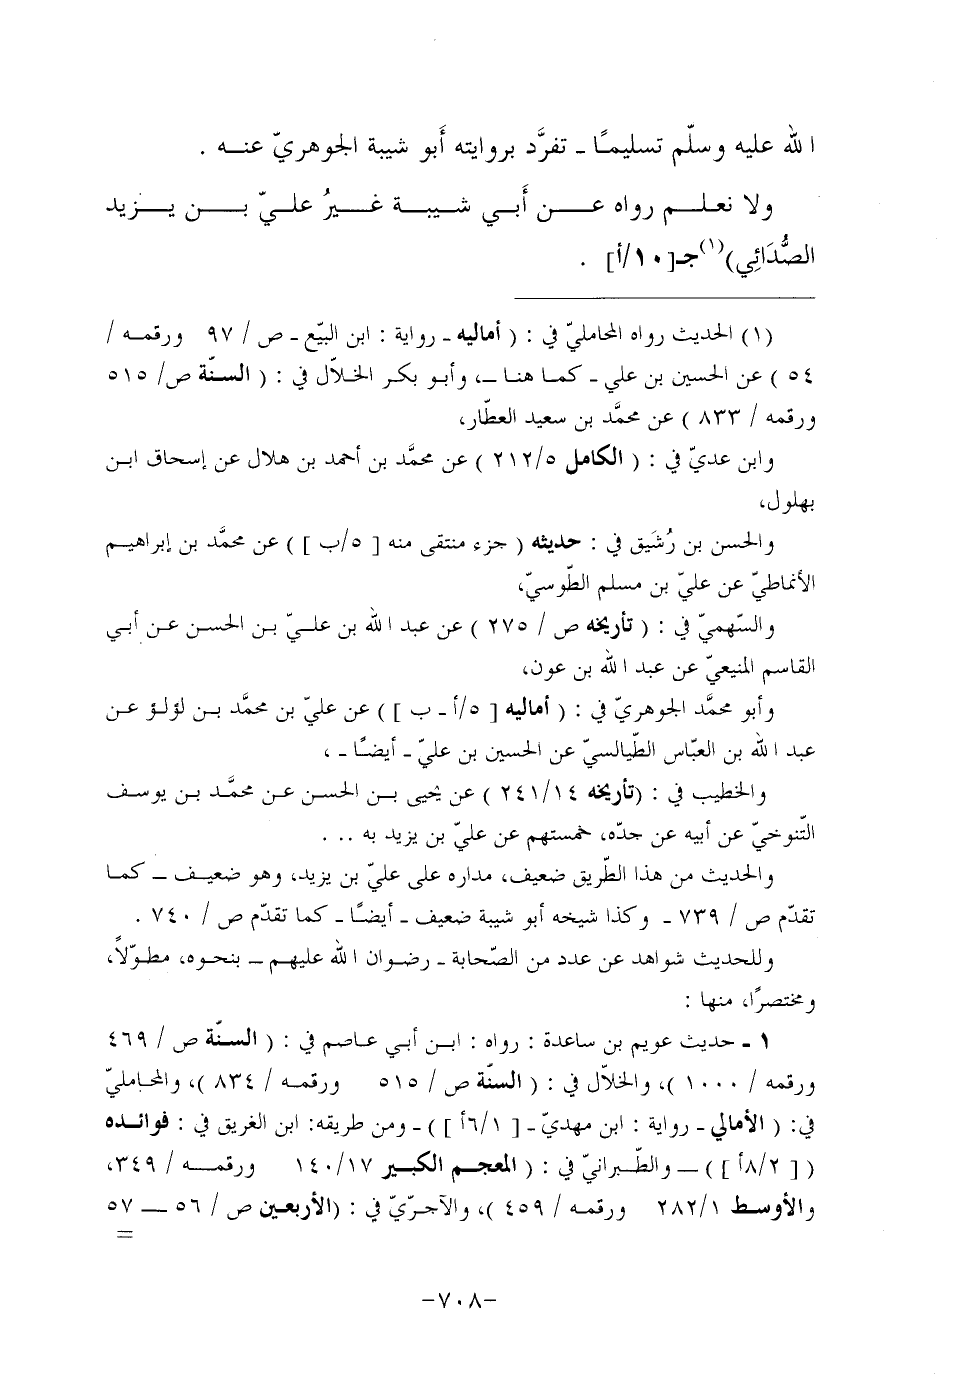 الله عليه وسلّم تسليمًا ـ تفرَّد بروايته أَبو شيبة الجوهريّ عنـه .
ولا نعلـم رواه عـن أَبـي شـيبـة غـيرُ علـيّ بـن يـزيد
الصُّدَائِي)(١)جـ[١٠/أ] .
(١) الحديث رواه المحامليّ في : ( أماليه ـ رواية : ابن البيّع ـ ص / ٩٧ ورقمـه /
٥٤ ) عن الحسين بن علي ـ كمـا هنـا ـ، وأبـو بكـر الخـلاّل في : ( السنّة ص/ ٥١٥
ورقمه / ٨٣٣ ) عن محمَّد بن سعيد العطّار،
وابن عديّ في : ( الكامل ٢١٢/٥ ) عن محمَّد بن أحمد بن هلال عن إسحاق ابـن
بهلول،
والحسن بن رُشَيق في : حديثه ( جزء منتقى منه [ ٥/ب ] ) عن محمَّد بن إبراهيـم
الأنماطيّ عن عليّ بن مسلم الطّوسيّ،
والسّهميّ في : ( تأريخه ص / ٢٧٥ ) عن عبد الله بن علـيّ بـن الحسـن عـن أبـي
القاسم المنيعيّ عن عبد الله بن عون،
وأبو محمَّد الجوهريّ في : ( أماليه [ ٥/أ ـ ب ] ) عن عليّ بن محمَّد بـن لؤلـؤ عـن
عبد الله بن العبّاس الطّيالسيّ عن الحسين بن عليّ ـ أيضًا ـ ،
والخطيب في : (تأريخه ٢٤١/١٤ ) عن يحيى بـن الحسن عـن محمَّـد بـن يوسـف
التّنوخيّ عن أبيه عن جدّه، خمستهم عن عليّ بن يزيد به . . .
والحديث من هذا الطّريق ضعيف، مداره على عليّ بن يزيد، وهو ضعيـف ــ كمـا
تقدّم ص / ٧٣٩ ـ وكذا شيخه أبو شيبة ضعيف ـ أيضًـا ـ كما تقدّم ص / ٧٤٠ .
وللحديث شواهد عن عدد من الصّحابة ـ رضـوان الله عليهـم ــ بنحـوه، مطـوّلاً،
ومختصرًا، منها :
١ ـ حديث عويم بن ساعدة : رواه : ابـن أبي عـاصم في : ( السنّة ص / ٤٦٩
ورقمه / ١٠٠٠ )، والخلاّل في : ( السنّة ص / ٥١٥ ورقمـه / ٨٣٤ )، والمحامليّ
في: ( الأمالي ـ رواية : ابن مهديّ ـ [ ٦/١أ ] ) ـ ومن طريقه: ابن الغريق في : فوائـده
( [ ٨/٢أ ] ) ــ والطّـبرانيّ في : ( المعجـم الكبـير ١٤٠/١٧ ورقمـه / ٣٤٩،
والأوسـط ٢٨٢/١ ورقمـه / ٤٥٩ )، والآجـرّيّ في : (الأربعـين ص / ٥٦ ــ ٥٧
=
-٧٠٨-